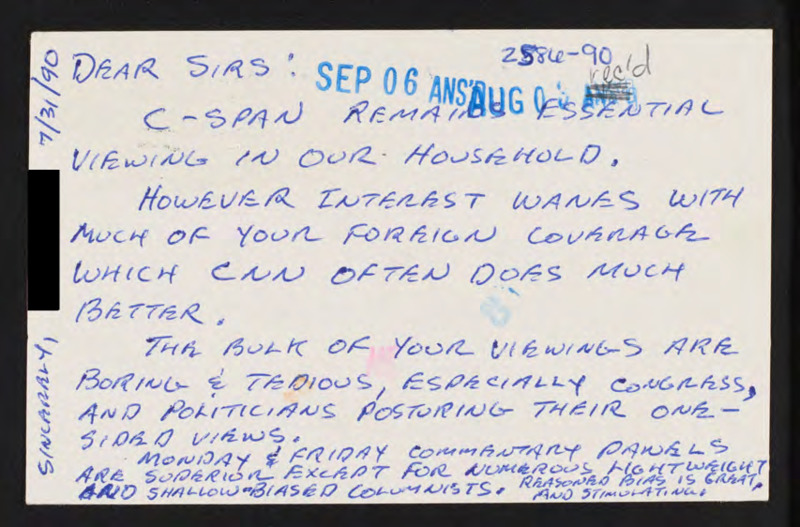 7/31/90
DEAR SIRS:
2586-90
rec'd
SEP 06 ANS'D
AUG 0
C-SPAN REMAINS ESSENTIAL
VIEWING IN OUR HOUSEHOLD.
HOWEVER INTEREST WANES WITH
MUCH OF YOUR FOREIGN COVERAGE
WHICH CNN OFTEN DOES MUCH
BETTER.
THE BULK OF YOUR VIEWINGS ARE
BORING & TEDIOUS, ESPECIALLY CONGRESS,
AND POLITICIANS POSTURING THEIR ONE-
SIDED VIEWS.
MONDAY & FRIDAY COMMENTARY PANELS
ARE SUPERIOR EXCEPT FOR NUMEROUS LIGHTWEIGHT
AND SHALLOW-BIASED COLUMNISTS. REASONED BIAS IS GREAT,
AND STIMULATING.
SINCERELY,